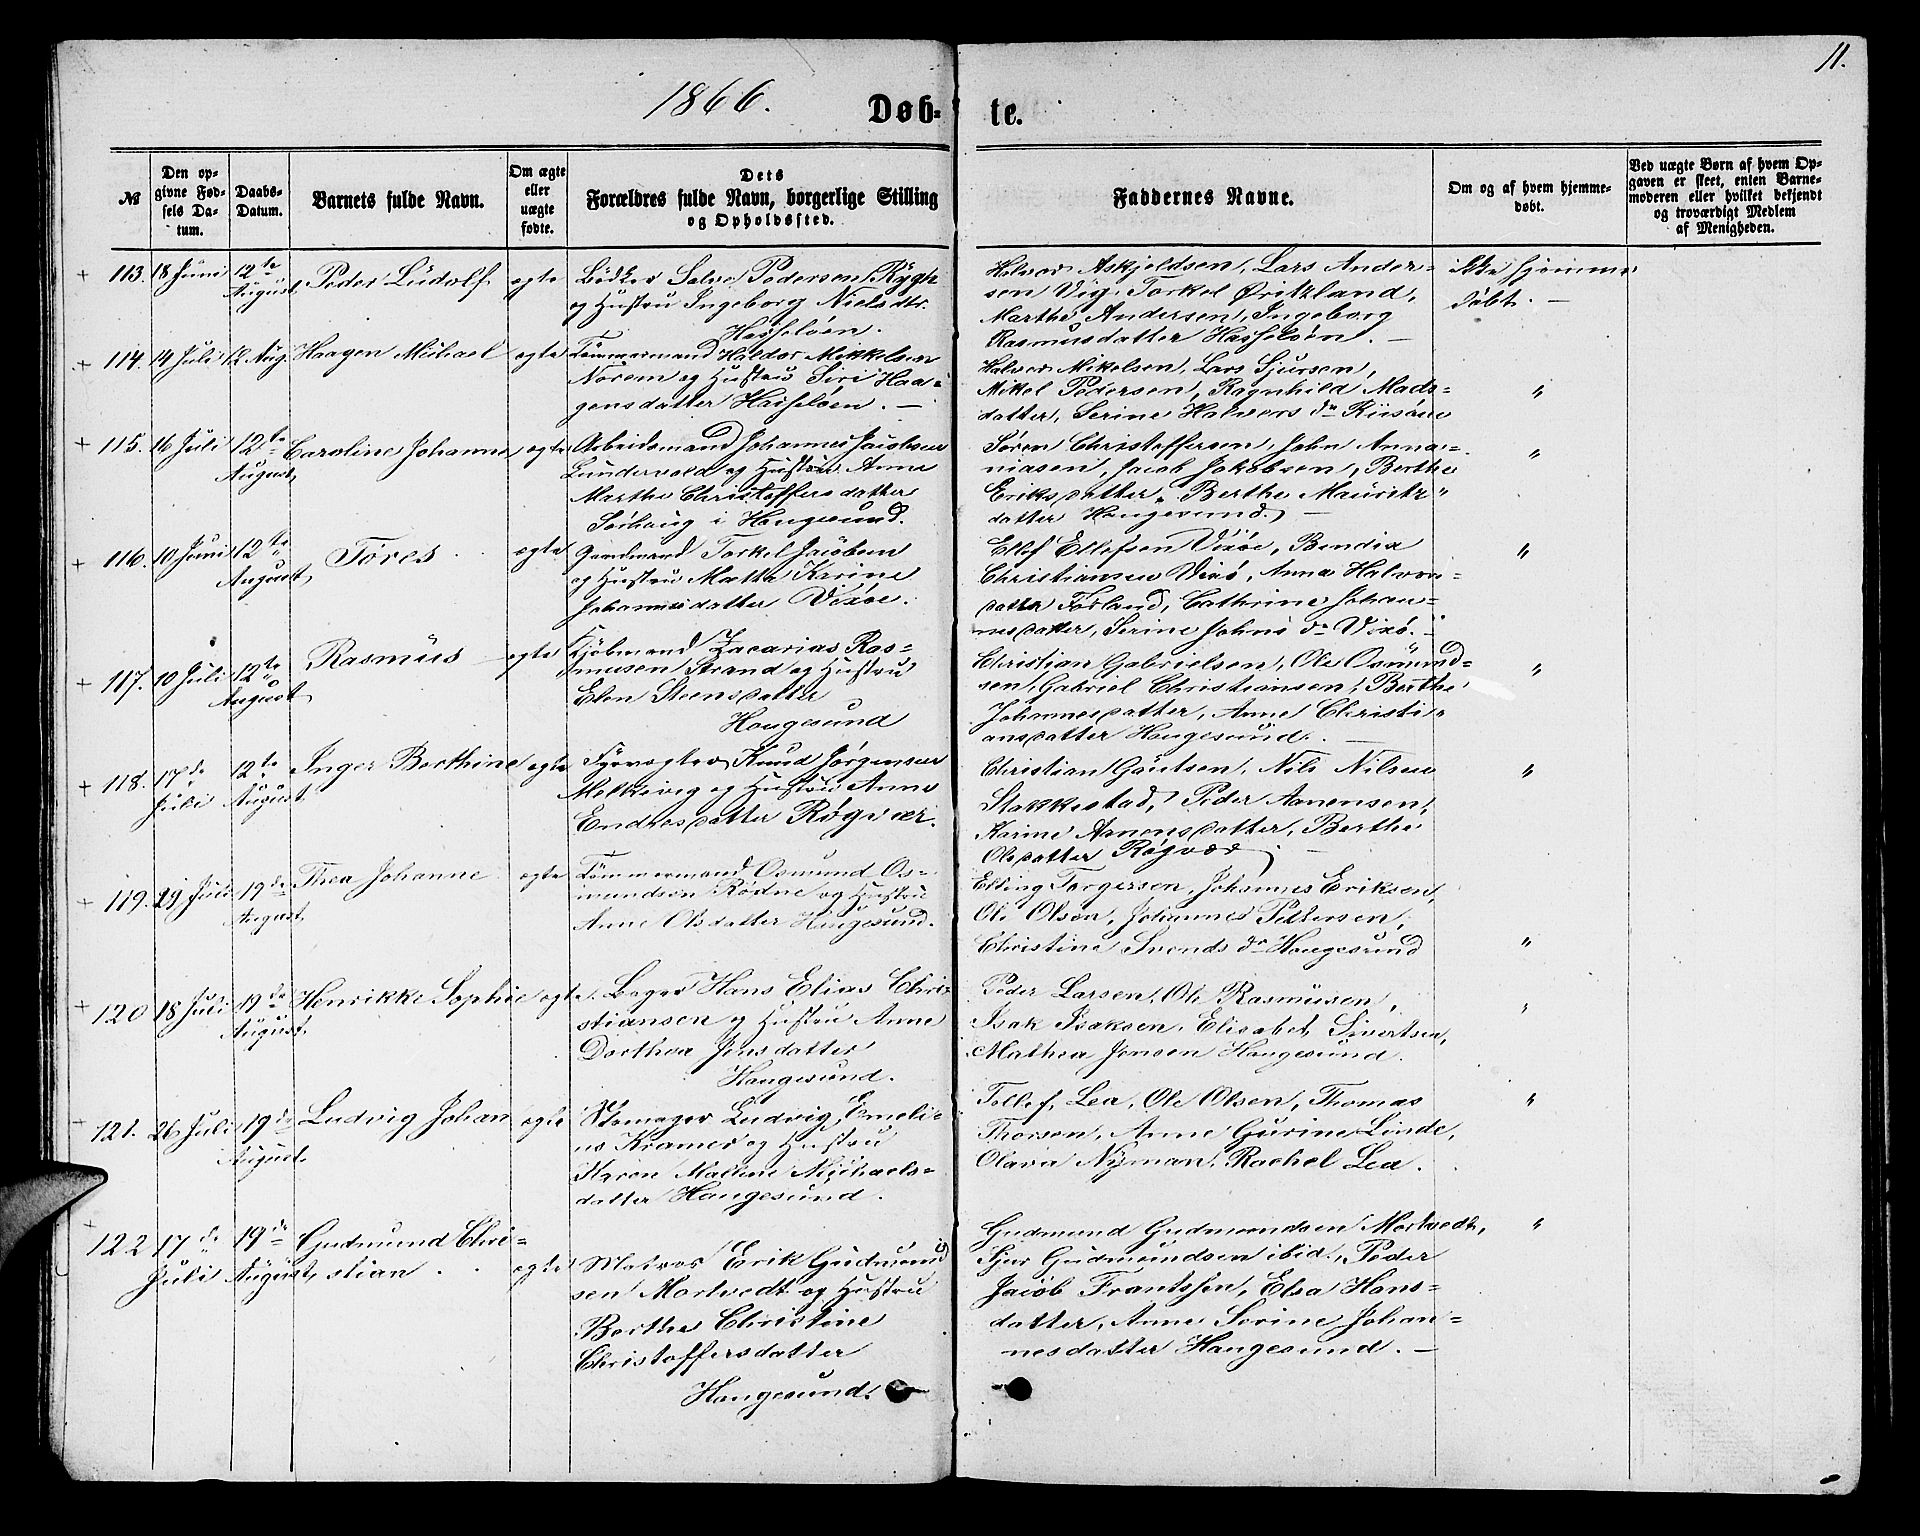 11.
1866.
Døb- te.
№
Den op-
givne Fød-
sels Da-
tum.
Daabs-
Datum.
Barnets fulde Navn.
Om ægte
eller
uægte
fødte.
Dets
Forældres fulde Navn, borgerlige Stilling
og Opholdssted.
Faddernes Navne.
Om og af hvem hjemme-
døbt.
Ved uægte Børn af hvem Op-
gaven er skeet, enten Barne-
moderen eller hvilket bekjendt
og troværdigt Medlem
af Menigheden.
+ 113. 18 Juni 12te August Peder Ludolf egte
Bødker Salve Pedersen Rygh
og Hustru Ingeborg Nielsdtr.
Hasseløen.
Halvor Askjeldsen, Lars Ander-
sen Vig, Torkel Øritzland,
Marthe Andersen, Ingeborg
Rasmusdatter Hasseløen. —
ikke hjemme
døbt. —
+ 114. 14 Juli 12 Aug. Haagen Michael egte
Tømmermand Haldor Mikkelsen
Norem og Hustru Siri Haa-
gensdatter Hasseløen. —
Halvor Mikelsen, Lars Sjursen,
Mikel Pedersen, Ragnhild Mads-
datter, Serine Halvors dr
"
+ 115. 16 Juli 12te August, Caroline Johanne egte
Arbeidsmand Johannes Jacobsen
Lundervold og Hustru Anne
Marthe Christoffersdatter
Sørhaug i Haugesund.
Søren Christoffersen, John Anna-
niasen, Jacob Jakobsen, Berthe
Eriksdatter, Berthe Mauritz"
datter Haugesund. —
"
+ 116. 10 Juni 12te August, Tøres egte
Gaardmand Torkel Jacobsen
og Hustru Martha Karine
Johannesdatter Vixøe.
Ellef Ellefsen Vixøe, Bendix
Christiansen Vixø, Anna Halvor-
datter Førland, Cathrine Johan-
nesdatter, Serine Johns dr Vixø. -
"
+ 117. 10 Juli 12te August Rasmus egte
Kjøbmand Zacarias Ras-
musen Strand og Hustru
Elen Steensdatter
Haugesund
Christian Gabrielsen, Ole Osmund-
sen, Gabriel Christiansen, Berthe
Johannesdatter, Anne Christi"
ansdatter Haugesund. —
"
+ 118. 17de Juli 12te August. Inger Berthine egte
Fyrvogter Knud Jørgensen
Melkevig og Hustru Anne
Endresdatter Røgvær.
Christian Gautsen, Nils Nilsen
Stakkestad, Peder Aanensen,
Karine Aanensdatter, Berthe
Olsdatter Røgvær.
"
+ 119. 29 Juli 19de August. Thea Johanne egte
Tømmermand Osmund Os-
mundsen Rødne og Hustru
Anne Olsdatter Haugesund.
Elling Torgersen, Johannes Eriksen,
Ole Olsen, Johannes Pettersen,
Christine Svends dr Haugesund
"
+ 120 18 Juli 19de August. Henrikke Sophie egte
Bager Hans Elias Chri-
stiansen og Hustru Anne
Dorthea Jensdatter
Haugesund.
Peder Larsen, Ole Rasmusen,
Isak Isaksen, Elisabet Sivertsen,
Mathea Jensen Haugesund.
"
+ 121. 26 Juli 19de August. Ludvig Johan egte
Skomager Ludvig Emeli-
us Kramer og Hustru
Karen Malene Michaels-
datter Haugesund.
Tollef, Lea, Ole Olsen, Thomas
Thorsen, Anne Gurine Linde,
Olava Nyman, Rachel Lea.
"
+ 122 17de Juli 19de August, Gudmund Chri-
stian egte
Matros Erik Gudmund
sen Mortvedt og Hustru
Berthe Christine
Christoffersdatter
Haugesund.
Gudmund Gudmundsen Mortvedt,
Sjur Gudmundsen ibid., Peder
Jacob Frantssen, Elsa Hans-
datter, Anne Serine Johan-
nesdatter Haugesund. —
"